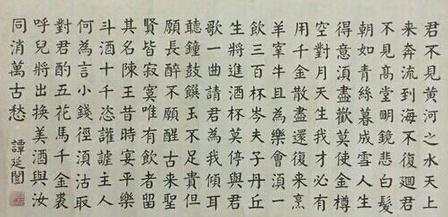 君不見黃河之水天上
來奔流到海不復迴君
不見高堂明鏡悲白髮
朝如青絲暮成雪人生
得意須盡歡莫使金樽
空對月天生我才必有
用千金散盡還復來烹
羊宰牛且為樂會須一
飲三百杯岑夫子丹丘
生將進酒杯莫停與君
歌一曲請君為我傾耳
聽鐘鼓饌玉不足貴但
願長醉不願醒古來聖
賢皆寂寞唯有飲者留
其名陳王昔時宴平樂
斗酒十千恣讙謔主人
何為言少錢徑須沽取
對君酌五花馬千金裘
呼兒將出換美酒與汝
同消萬古愁 譚延闓